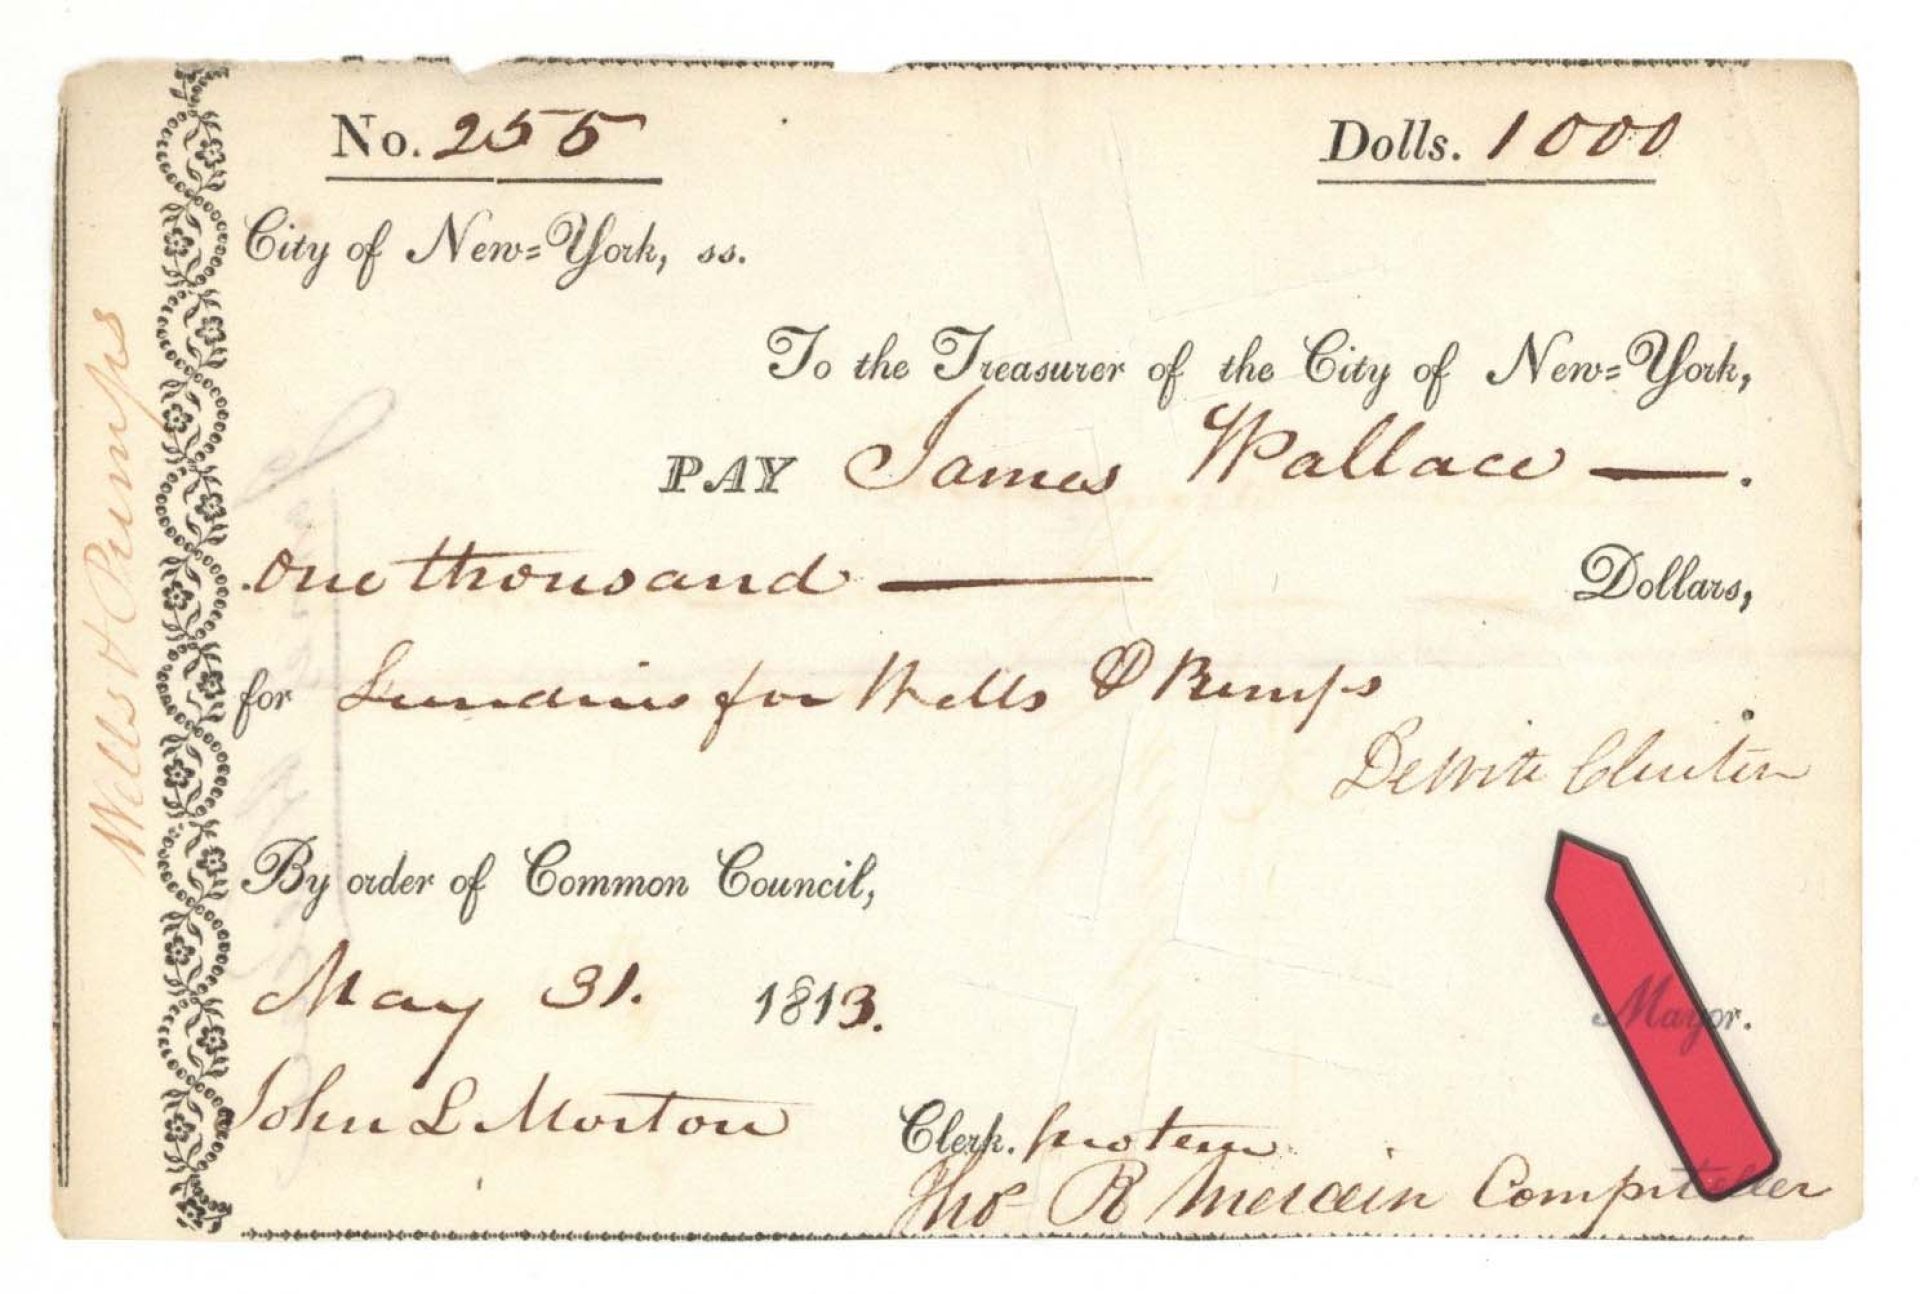 No. 255
Dolls. 1000
City of New=York, ss.
To the Treasurer of the City of New=York,
PAY James Wallace
one thousand Dollars,
for Sundries for Wells & Pumps
DeWitt Clinton
By order of Common Council,
May 31. 1813.
Mayor.
John L Morton Clerk. protem
Thos R Mercein Comptroller
Wells & Pumps